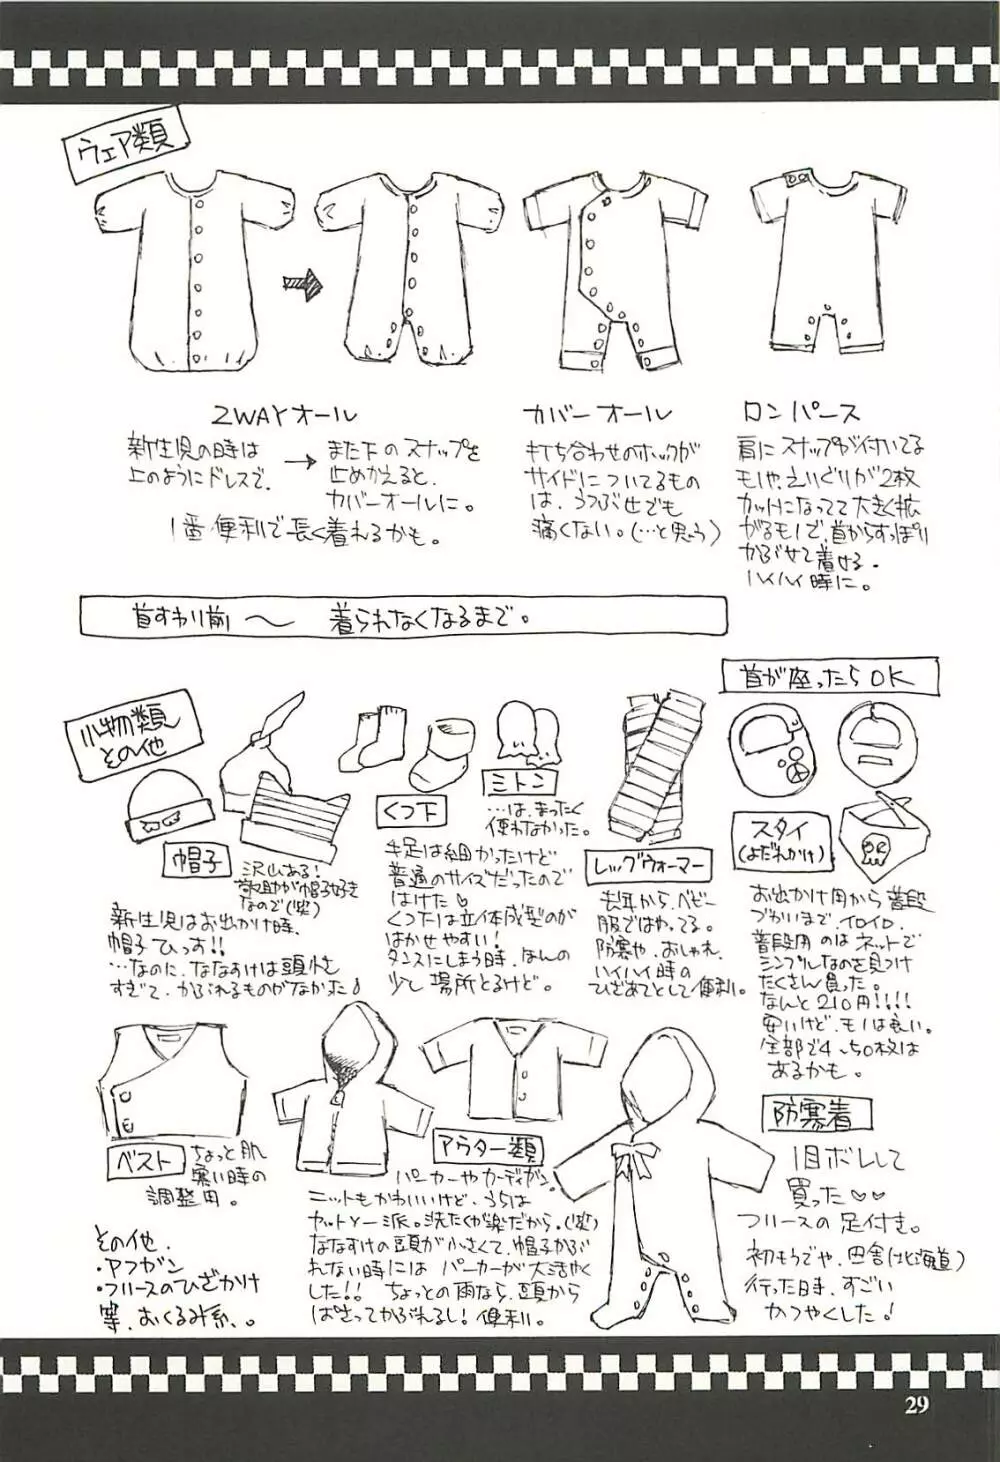 ウェア類
2WAYオール
新生児の時は
上のようにドレスで、
→
また下のスナップを
止めかえると、
カバーオールに。
1番便利で長く着れるかも。
カバーオール
打ち合わせのホックが
サイドについてるもの
は、うつぶせでも
痛くない。(…と思う)
ロンパース
肩にスナップが付いてる
モノや、えりぐりが2枚
カットになってて大きく拡
がるモノで、首からすっぽり
かぶせて着せる。
ハイハイ時に。
首すわり前 〜 着られなくなるまで。
首が座ったらOK
小物類
その他
帽子
沢山ある!
が帽子好き
なので(笑)
新生児はお出かけ時、
帽子ひっす!!
…なのに、ななすけは頭小さ
すぎて、かぶれるものがなかった
くつ下
手足は細かったけど
普通のサイズだったので
はけた
くつ下は立体成型のが
はかせやすい!
タンスにしまう時、ほんの
少し場所とるけど。
ミトン
…は、まったく
使わなかった。
レッグウォーマー
去年から、ベビー
服ではやってる。
防寒や、おしゃれ、
ハイハイ時の
ひざあてとして便利。
スタイ
(よだれかけ)
お出かけ用から普段
づかいまで、イロイロ、
普段用のはネットで
シンプルなのを見つけ
たくさん買った。
なんと210円!!!!
安いけど、モノは良い。
全部で4、50枚は
あるかも。
ベスト
ちょっと肌
寒い時の
調整用。
アウター類
パーカーやカーディガン。
ニットもかわいいけど、うちは
カットソー派。洗たくが楽だから。(笑)
ななすけの頭が小さくて、帽子かぶ
れない時には パーカーが大活やく
した!! ちょっとの雨なら、頭から
ばさってかぶれるし!便利。
防寒着
1目ボレして
買った♡♡
フリースの足付き。
初もうでや、田舎(北海道)
行った時、すごい
かつやくした!
その他、
・アフガン
・フリースのひざかけ
等、おくるみ系、。
29